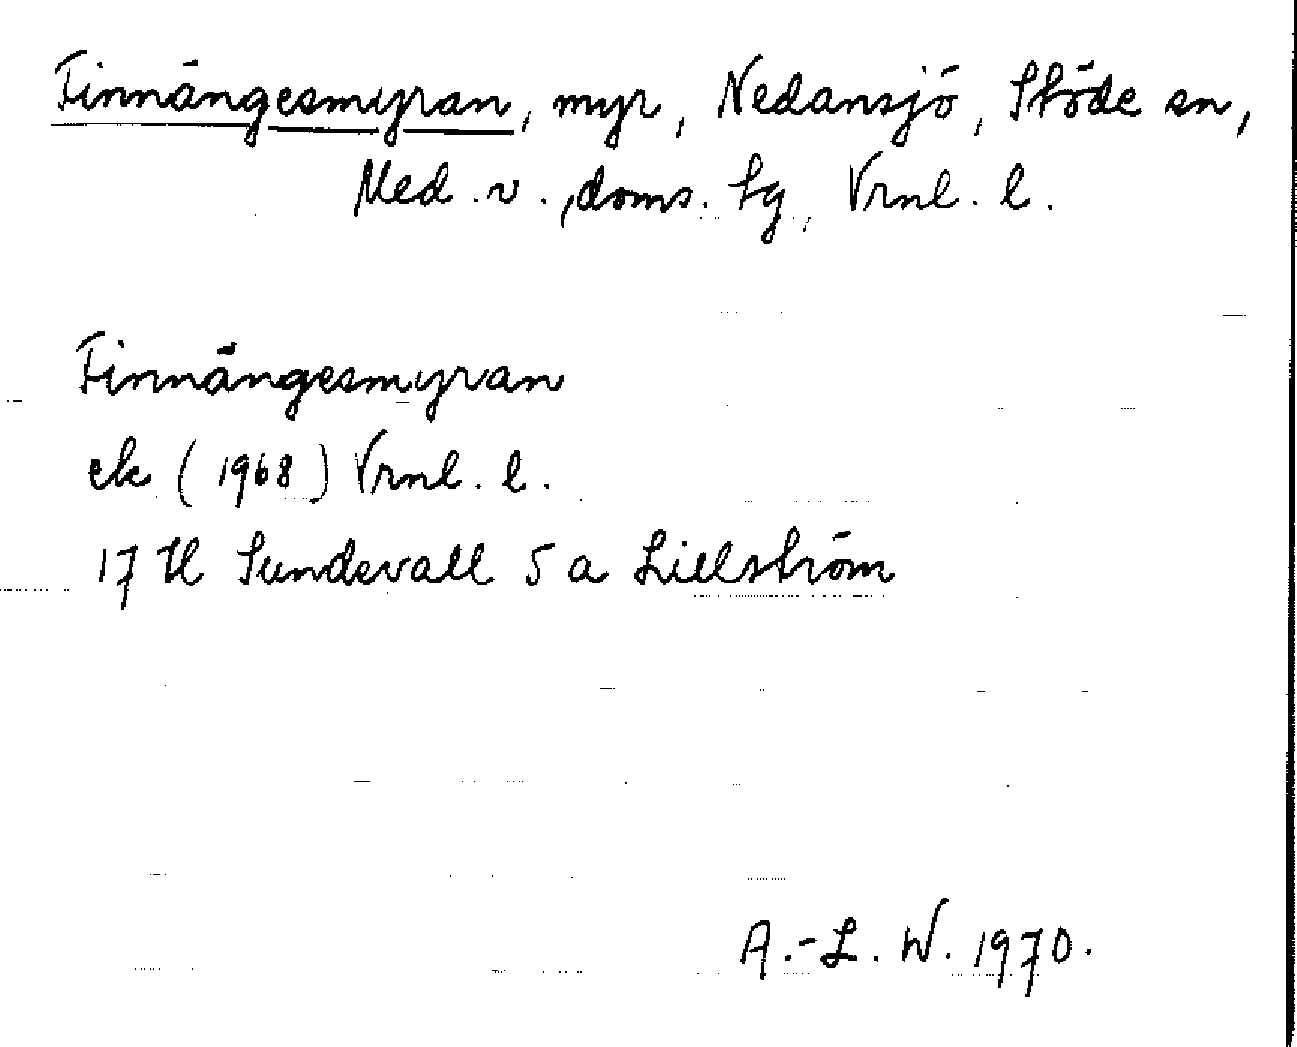 Finnängesmyran, myr, Nedansjö, Stöde sn,
Med. v., doms. tg, Vrnl. l.
Finnängesmyran
ek (1968) Vrnl. l.
17 H Sundsvall 5 a Lillström
A.-L. W. 1970.